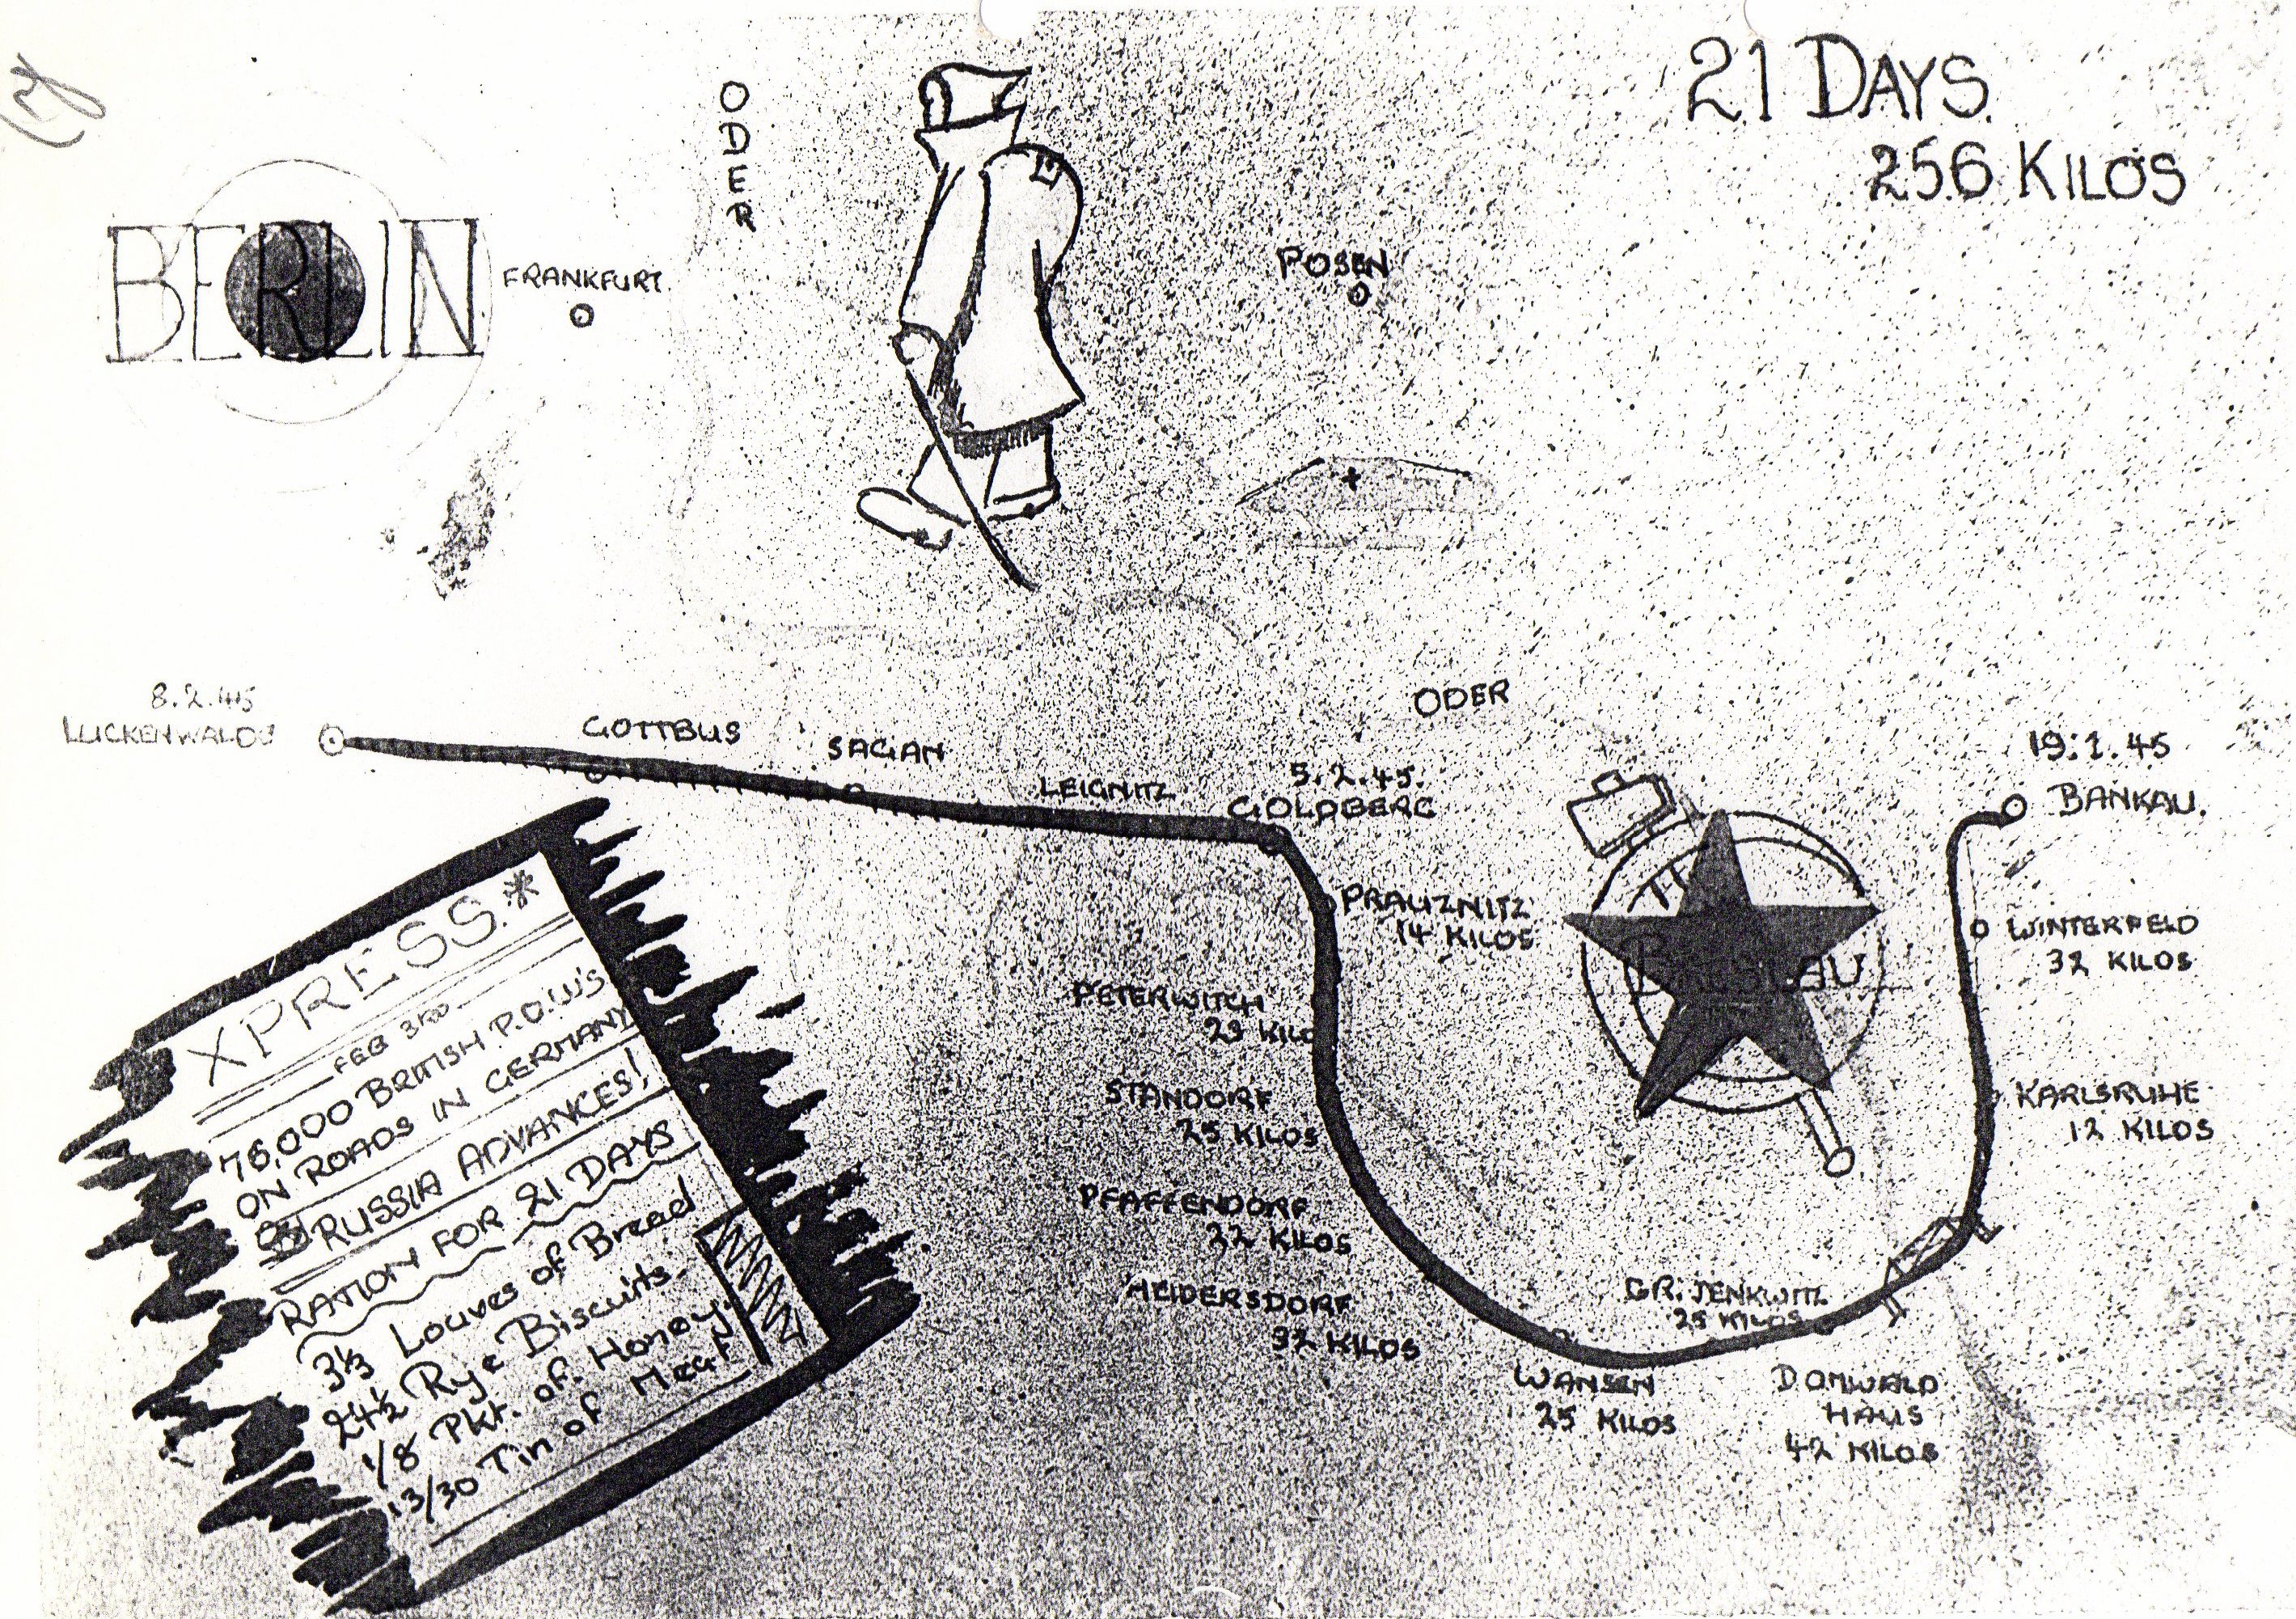 21 DAYS.
256 KILOS
ODER
BERLIN
FRANKFURT.
POSEN
8.2.45
LUCKENWALDE
GOTTBUS
SAGAN
LEIGNITZ
5.2.45.
GOLDBERG
ODER
19.1.45
BANKAU.
PRAUZNITZ
14 KILOS
BRESLAU
WINTERFELD
32 KILOS
PETERWITCH
29 KILO
STANDORF
25 KILOS
KARLSRUHE
12 KILOS
PFAFFENDORF
22 KILOS
HEIDERSDORF
32 KILOS
GR. JENKWITZ
25 KILOS
WANSEN
25 KILOS
DOMWALD
HAUS
42 KILOS
XPRESS.*
FEB 3RD.
76,000 BRITISH P.O.W'S
ON ROADS IN GERMANY
RUSSIA ADVANCES!
RATION FOR 21 DAYS
3⅓ Louves of Bread
24½ Rye Biscuits.
1/8 Pkt. of. Honey.
13/30 Tin of Meat